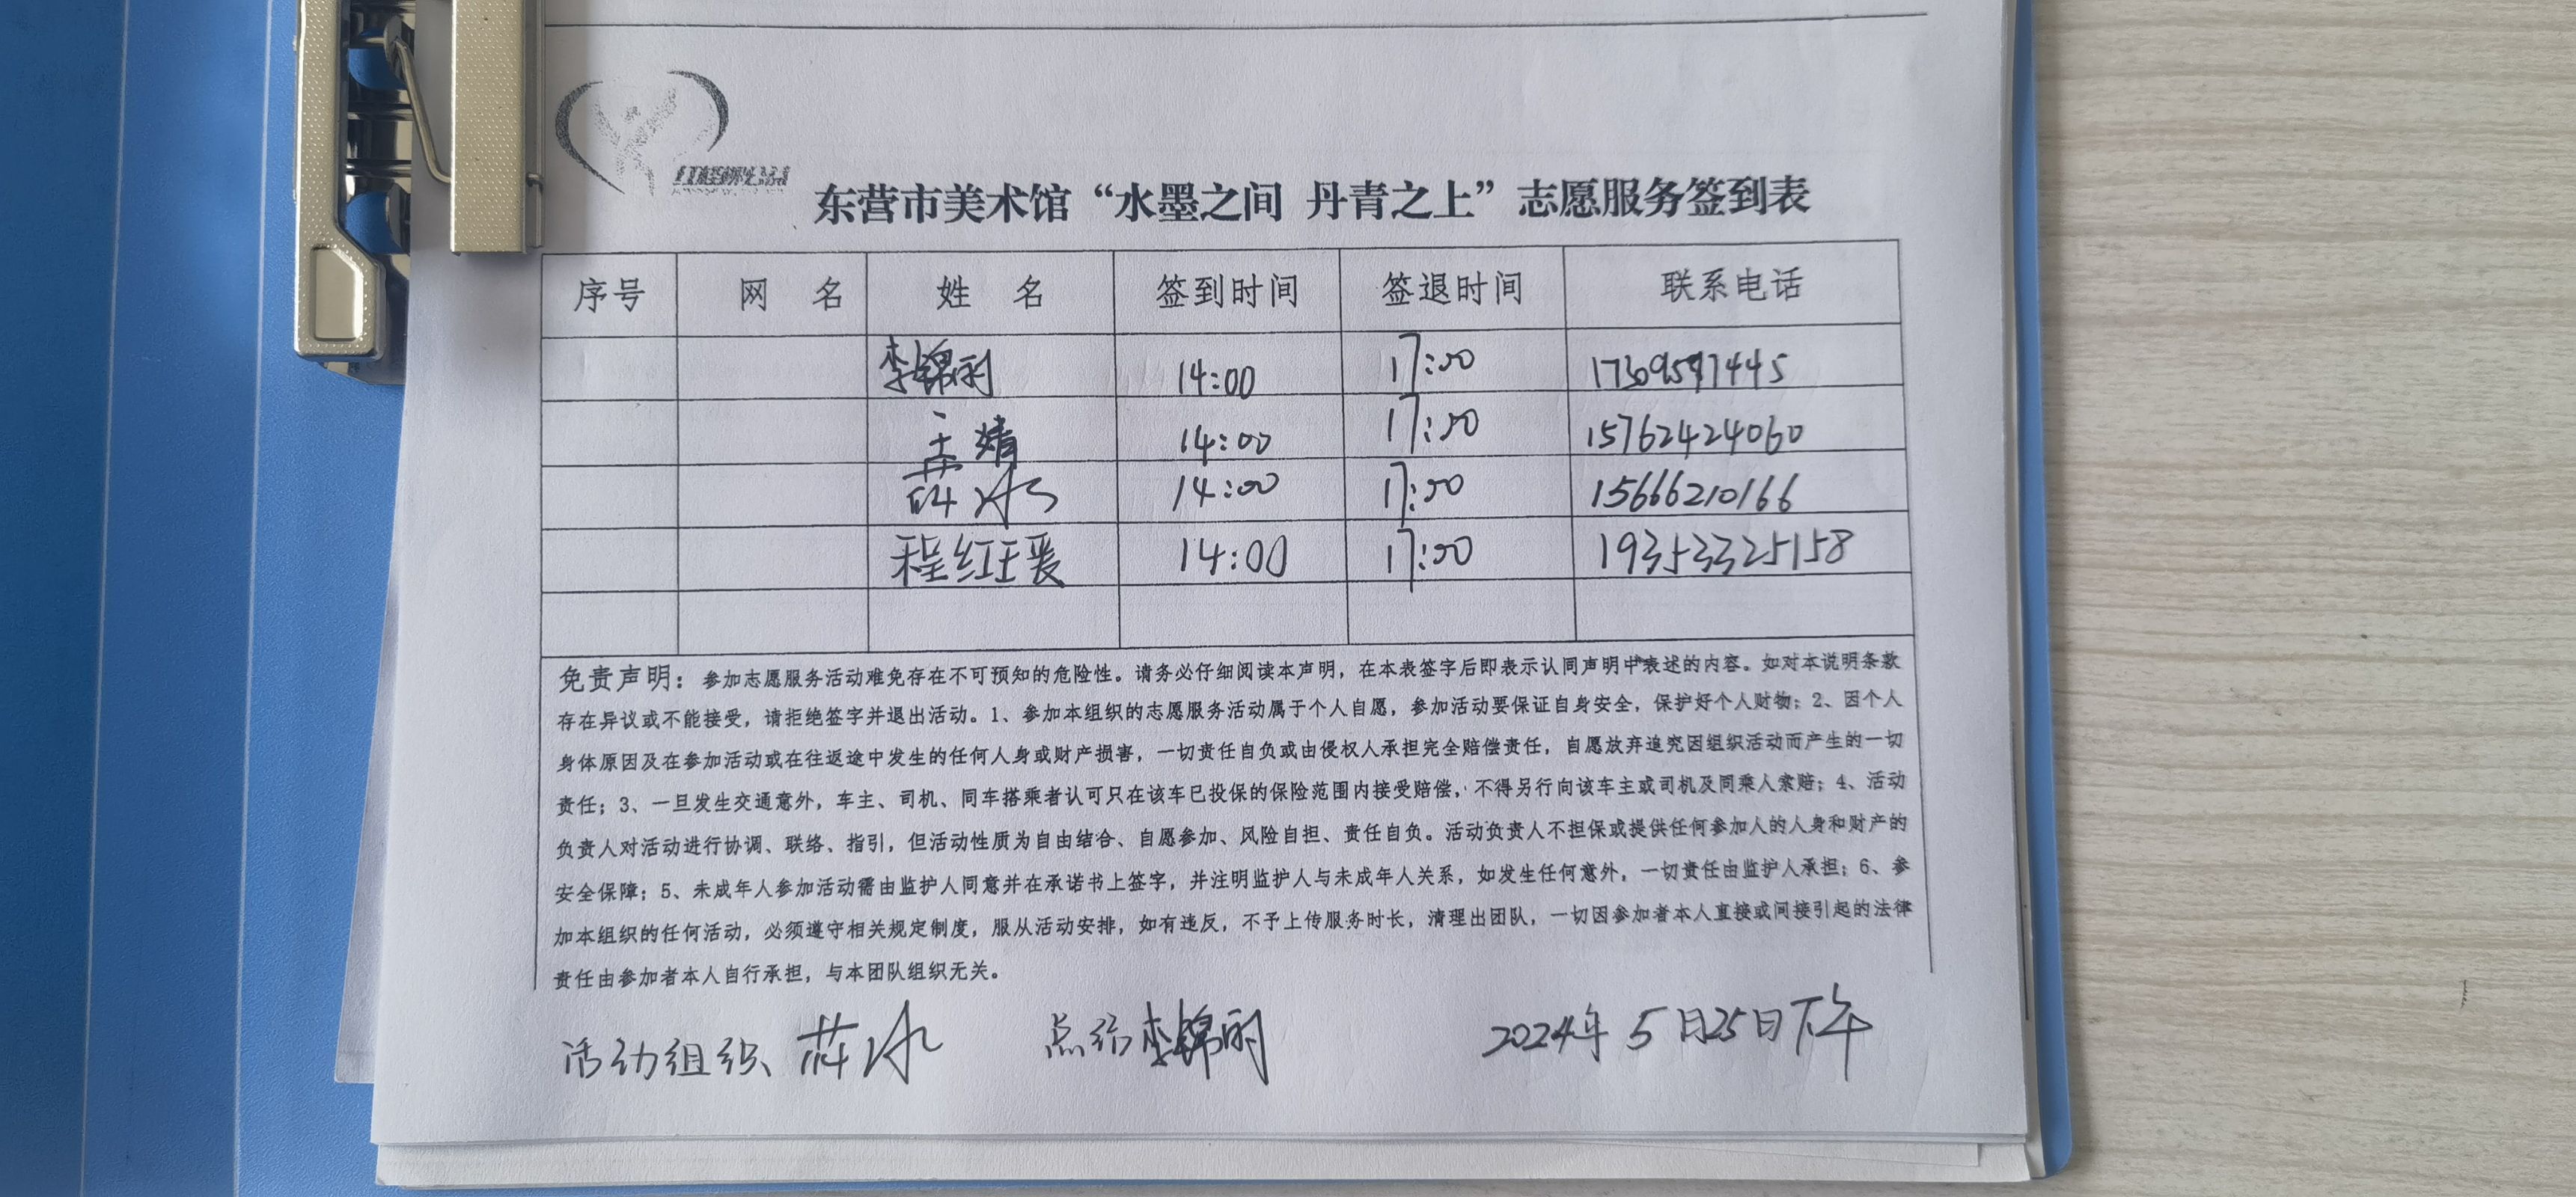 东营市美术馆“水墨之间 丹青之上”志愿服务签到表
序号 网 名 姓 名 签到时间 签退时间 联系电话
李锦丽 14:00 17:00
王婧 14:00 17:00 15762424060
薛冰 14:00 17:00 15666210166
程红瑗 14:00 17:00 19353325158
免责声明：参加志愿服务活动难免存在不可预知的危险性。请务必仔细阅读本声明，在本表签字后即表示认同声明中表述的内容。如对本说明条款
存在异议或不能接受，请拒绝签字并退出活动。1、参加本组织的志愿服务活动属于个人自愿，参加活动要保证自身安全，保护好个人财物；2、因个人
身体原因及在参加活动或在往返途中发生的任何人身或财产损害，一切责任自负或由侵权人承担完全赔偿责任，自愿放弃追究因组织活动而产生的一切
责任；3、一旦发生交通意外，车主、司机、同车搭乘者认可只在该车已投保的保险范围内接受赔偿，不得另行向该车主或司机及同乘人索赔；4、活动
负责人对活动进行协调、联络、指引，但活动性质为自由结合、自愿参加、风险自担、责任自负。活动负责人不担保或提供任何参加人的人身和财产的
安全保障；5、未成年人参加活动需由监护人同意并在承诺书上签字，并注明监护人与未成年人关系，如发生任何意外，一切责任由监护人承担；6、参
加本组织的任何活动，必须遵守相关规定制度，服从活动安排，如有违反，不予上传服务时长，清理出团队，一切因参加者本人直接或间接引起的法律
责任由参加者本人自行承担，与本团队组织无关。
活动组织、薛冰 李锦丽 2024年5月25日下午